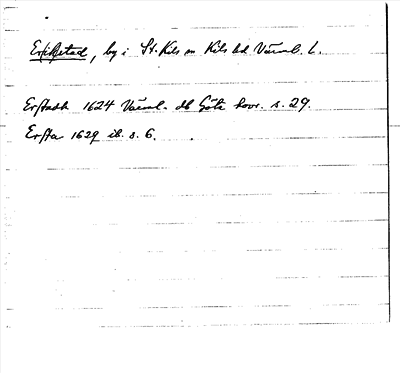 by i St. Kils sn Kils hd Värml. L.
1624 Värml. db Göta hovr. s. 29.
Ersta 1629 ib. s. 6.